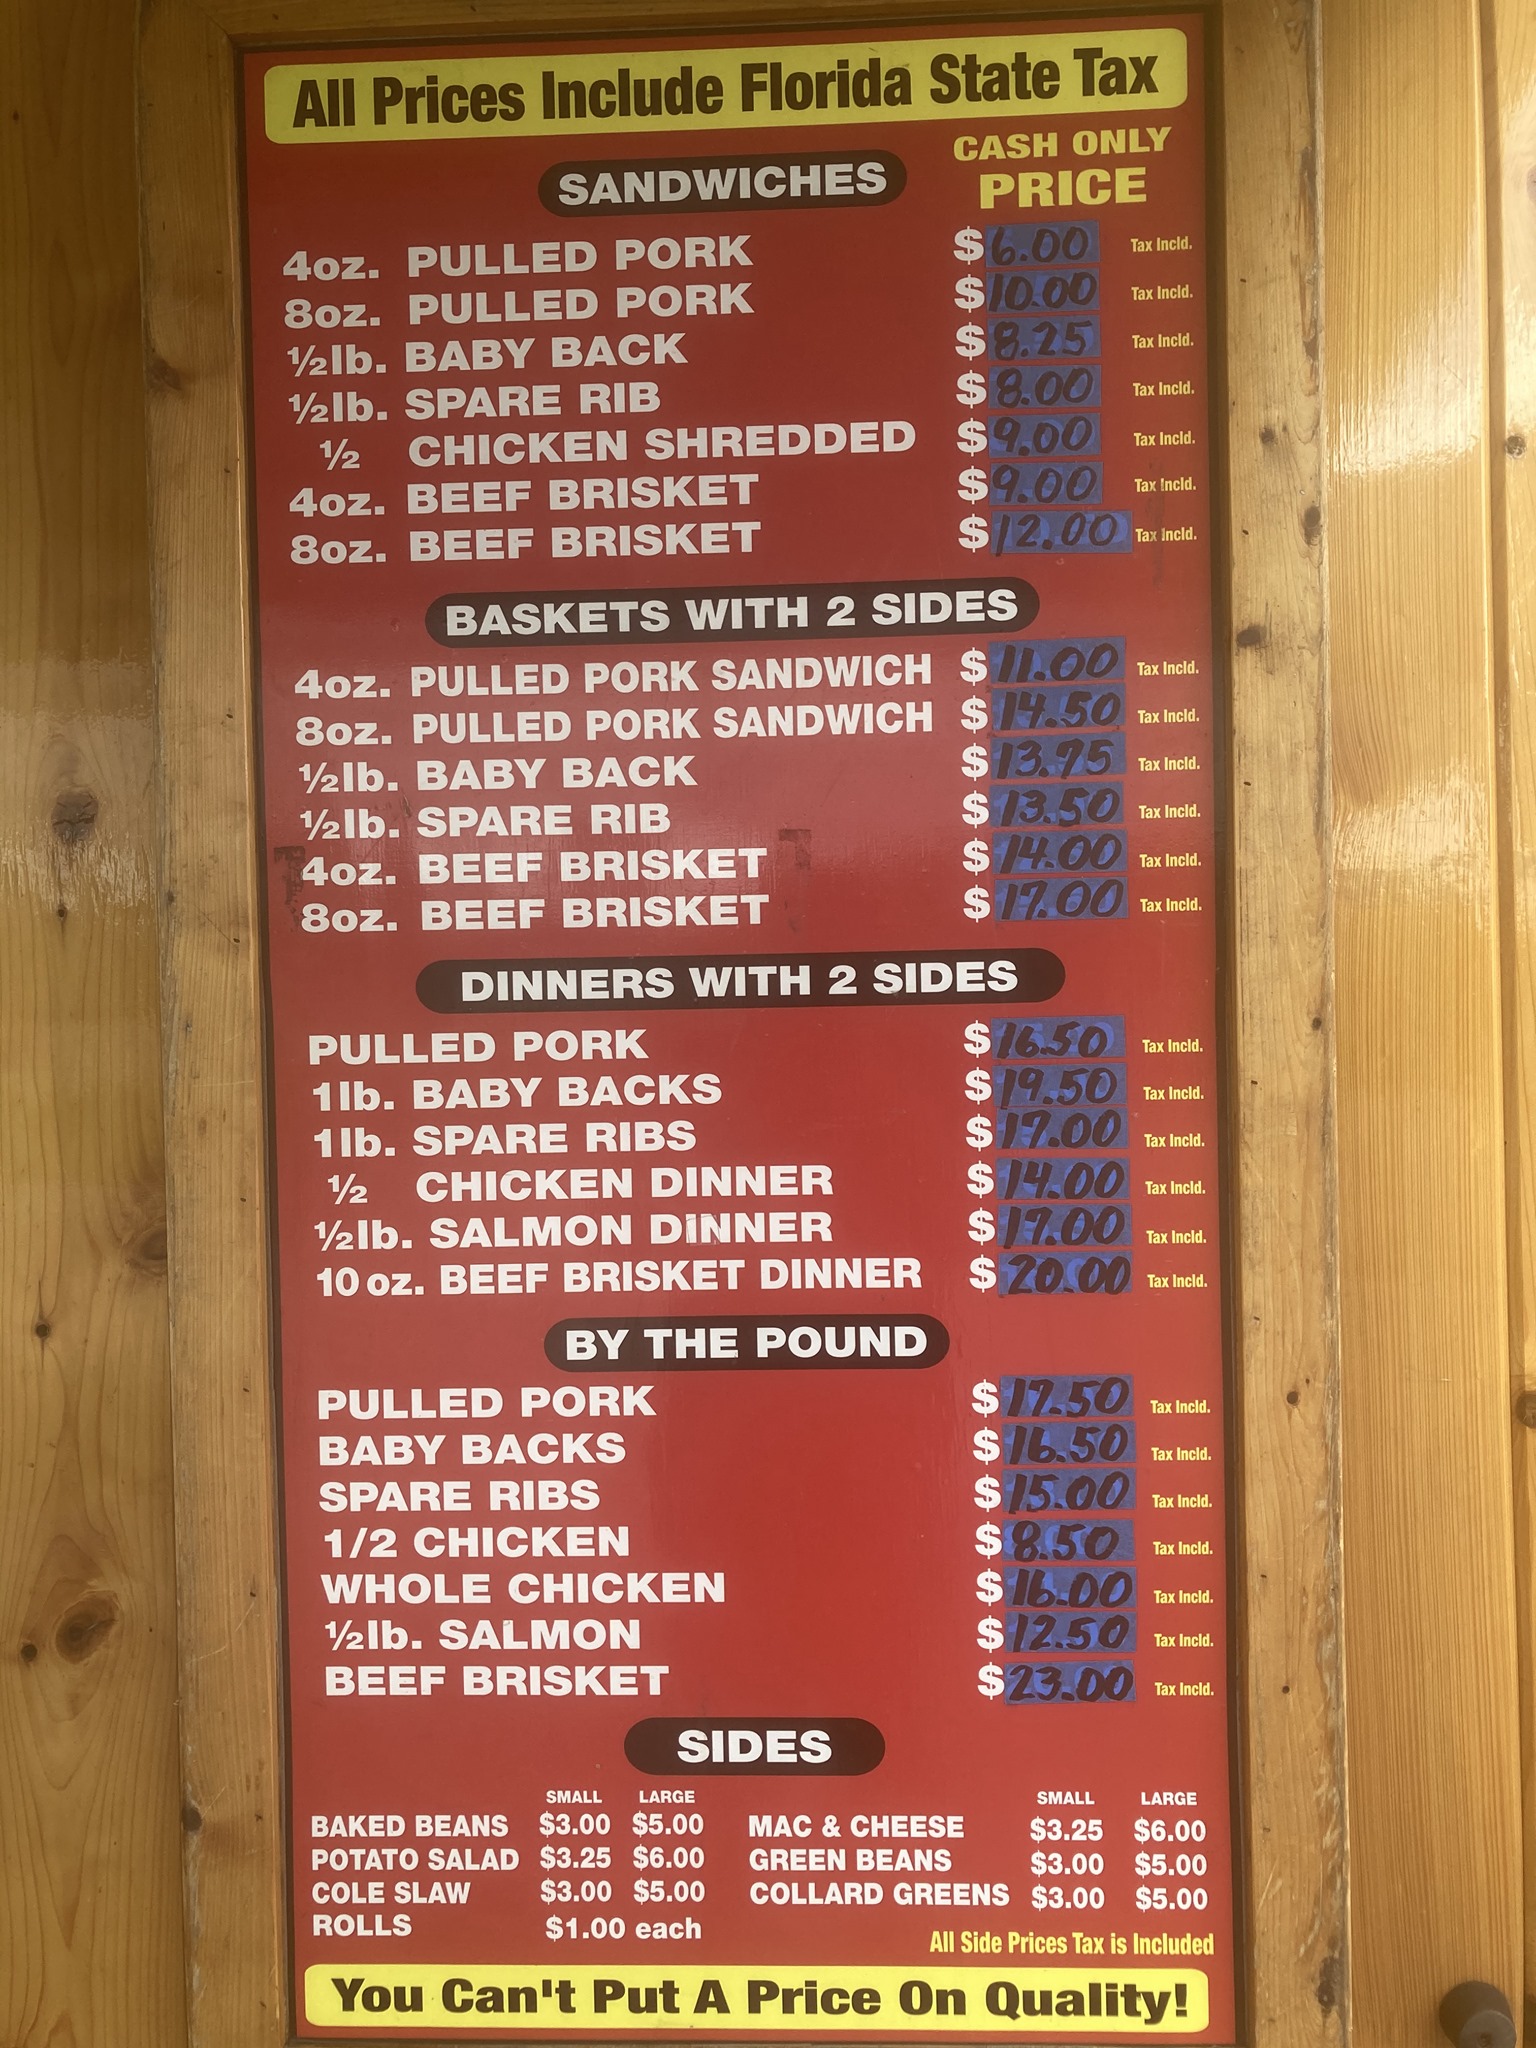 All Prices Include Florida State Tax
CASH ONLY
SANDWICHES PRICE
4oz. PULLED PORK $6.00 Tax Incld.
8oz. PULLED PORK $10.00 Tax Incld.
½lb. BABY BACK $8.25 Tax Incld.
½lb. SPARE RIB $8.00 Tax Incld.
½ CHICKEN SHREDDED $9.00 Tax Incld.
4oz. BEEF BRISKET $9.00 Tax Incld.
8oz. BEEF BRISKET $12.00 Tax Incld.
BASKETS WITH 2 SIDES
4oz. PULLED PORK SANDWICH $11.00 Tax Incld.
8oz. PULLED PORK SANDWICH $14.50 Tax Incld.
½lb. BABY BACK $13.75 Tax Incld.
½lb. SPARE RIB $13.50 Tax Incld.
4oz. BEEF BRISKET $14.00 Tax Incld.
8oz. BEEF BRISKET $17.00 Tax Incld.
DINNERS WITH 2 SIDES
PULLED PORK $16.50 Tax Incld.
1lb. BABY BACKS $19.50 Tax Incld.
1lb. SPARE RIBS $17.00 Tax Incld.
½ CHICKEN DINNER $14.00 Tax Incld.
½lb. SALMON DINNER $17.00 Tax Incld.
10 oz. BEEF BRISKET DINNER $20.00 Tax Incld.
BY THE POUND
PULLED PORK $17.50 Tax Incld.
BABY BACKS $16.50 Tax Incld.
SPARE RIBS $15.00 Tax Incld.
1/2 CHICKEN $8.50 Tax Incld.
WHOLE CHICKEN $16.00 Tax Incld.
½lb. SALMON $12.50 Tax Incld.
BEEF BRISKET $23.00 Tax Incld.
SIDES
SMALL LARGE SMALL LARGE
BAKED BEANS $3.00 $5.00 MAC & CHEESE $3.25 $6.00
POTATO SALAD $3.25 $6.00 GREEN BEANS $3.00 $5.00
COLE SLAW $3.00 $5.00 COLLARD GREENS $3.00 $5.00
ROLLS $1.00 each
All Side Prices Tax is Included
You Can't Put A Price On Quality!